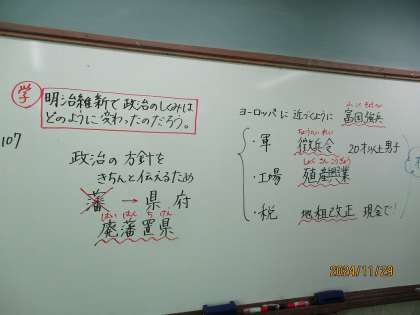 学
明治維新で政治のしくみは
どのように変わったのだろう。
107
政治の方針を
きちんと伝えるため
藩 → 県 府
はい はん ち けん
廃藩置県
ヨーロッパに 近づくように 富国強兵
・軍 徴兵令 20才以上男子
ちょうへいれい
しょくさんこうぎょう
・工場 殖産興業
・税 地租改正 現金で!
2024/11/29